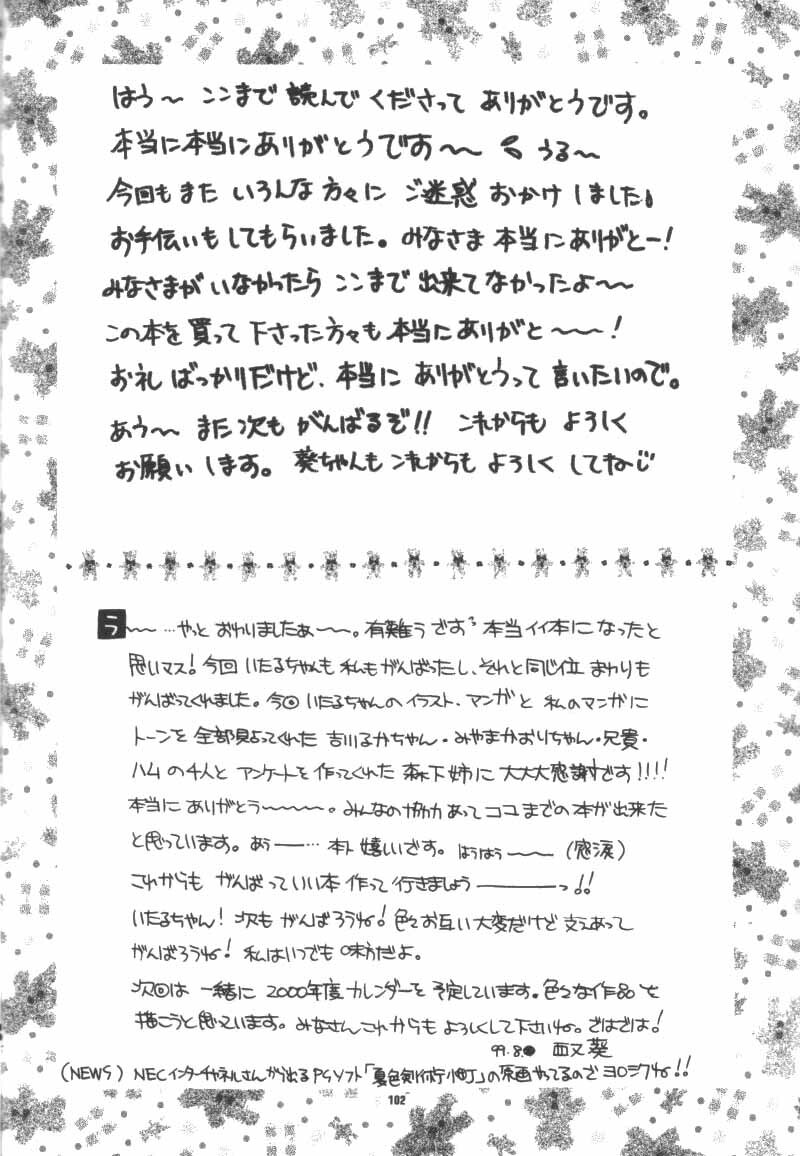 はう〜 ここまで 読んで くださって ありがとうです。
本当に本当にありがとうですぅ〜〜 うる〜
今回もまた いろんな方々に ご迷惑 おかけしました。
お手伝いもしてもらいました。みなさま 本当にありがとー!
みなさまが いなかったら ここまで 出来てなかったよ〜〜
この本を 買って 下さった方々も 本当にありがと〜〜!
お礼 ばっかりだけど、本当に ありがとうって 言いたいので。
あう〜 また 次も がんばるぞ!! これからも よろしく
お願いします。葵ちゃんも これからも よろしく してね
う〜〜…やっと おわりましたぁ〜〜。有難うです 本当イイ本に なったと
思いマス! 今回 いたるちゃんも 私も がんばったし、それと同じ位 まわりも
がんばってくれました。今回 いたるちゃんの イラスト、マンガと 私のマンガに
トーンを 全部貼ってくれた 吉川るかちゃん・みやまかおりちゃん・兄貴・
ハムの4人と アンケートを 作ってくれた 森下姉に 大大大感謝です!!!!
本当に ありがとう〜〜〜。みんなの協力 あって ココまでの本が出来た
と思っています。あぅ――… 本ト 嬉しいです。はうはう〜〜 (感涙)
これからも がんばっていい本 作って 行きましょう――――っ!!
いたるちゃん! 次も がんばろうね! 色々お互い 大変だけど 支えあって
がんばろうね! 私はいつでも 味方だよ。
次回は 一緒に 2000年度 カレンダーを 予定しています。色々な作品を
描こうと思っています。みなさん これからも よろしくして下さいね。ではでは!
99.8. 葵
(NEWS) NECインターチャネルさんから出る PSソフト「夏色剣術小町」の 原画やってるので ヨロシクね!!
102